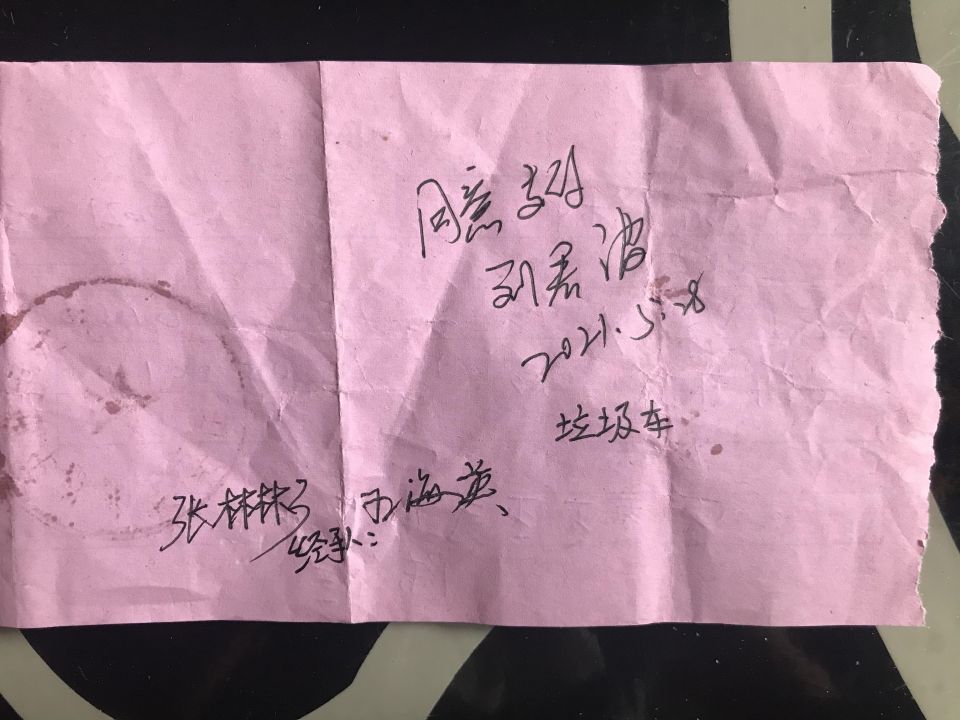 同意支付
刘君波
2021.5.28
垃圾车
张林林 王海英
经手人: